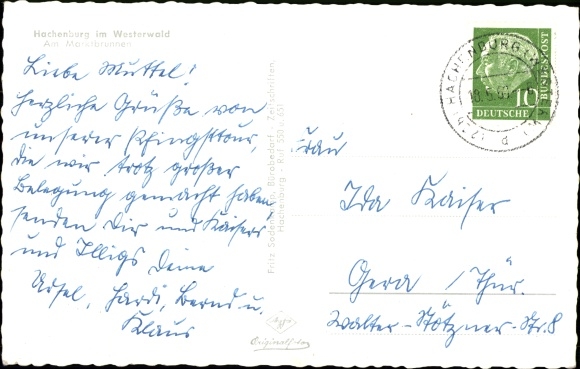 Hachenburg im Westerwald
Am Marktbrunnen
Liebe Muttel!
Herzliche Grüße von
unserer Pfingsttour,
die wir trotz großer
Belegung gemacht haben,
senden Dir und Kaisers
und Illigs Deine
Ursel, Hardi, Bernd u.
Klaus
Fritz Soden, Bürobedarf - Zeitschriften,
Hachenburg - Ruf 550 / 651
Agfa
HACHENBURG
d
10
DEUTSCHE
BUNDESPOST
Frau
Ida Kaiser
Gera / Thür.
Walter-Stötzner-Str. 8